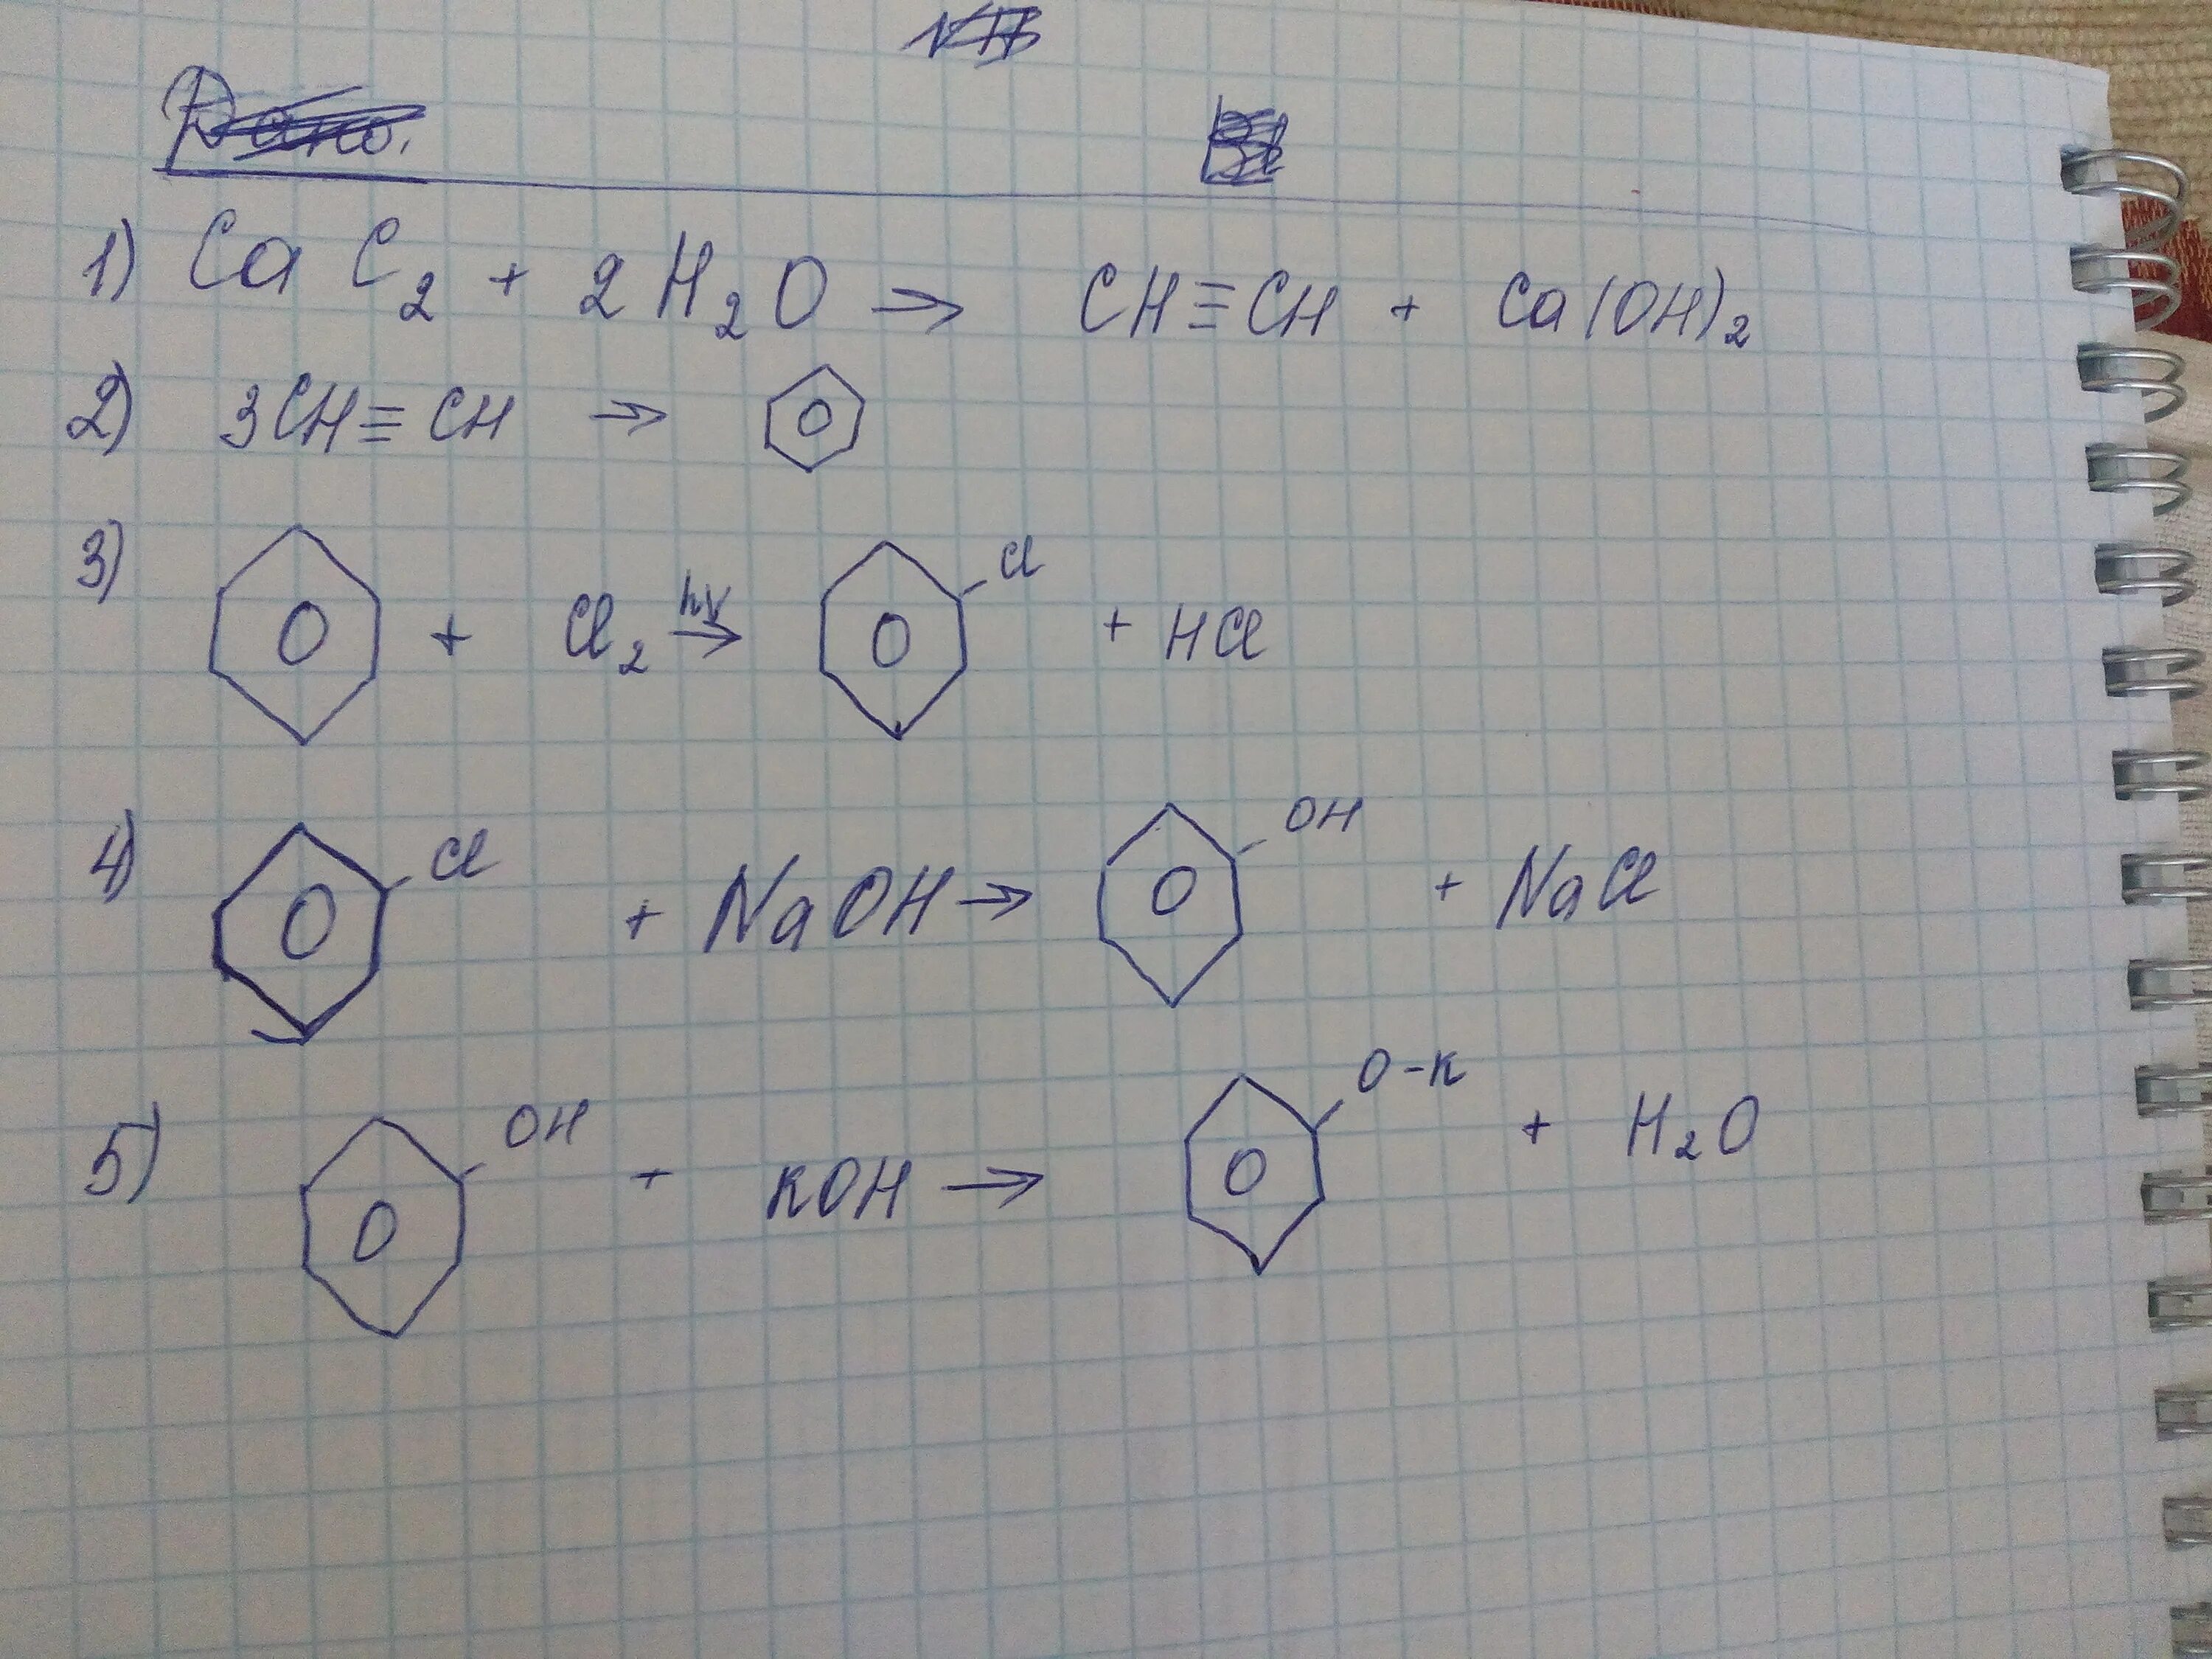 Дано.
1) CaC₂ + 2H₂O → CH≡CH + Ca(OH)₂
2) 3CH≡CH →
3) + Cl₂ hν → Cl + HCl
4) Cl + NaOH → OH + NaCl
5) OH + KOH → O-K + H₂O